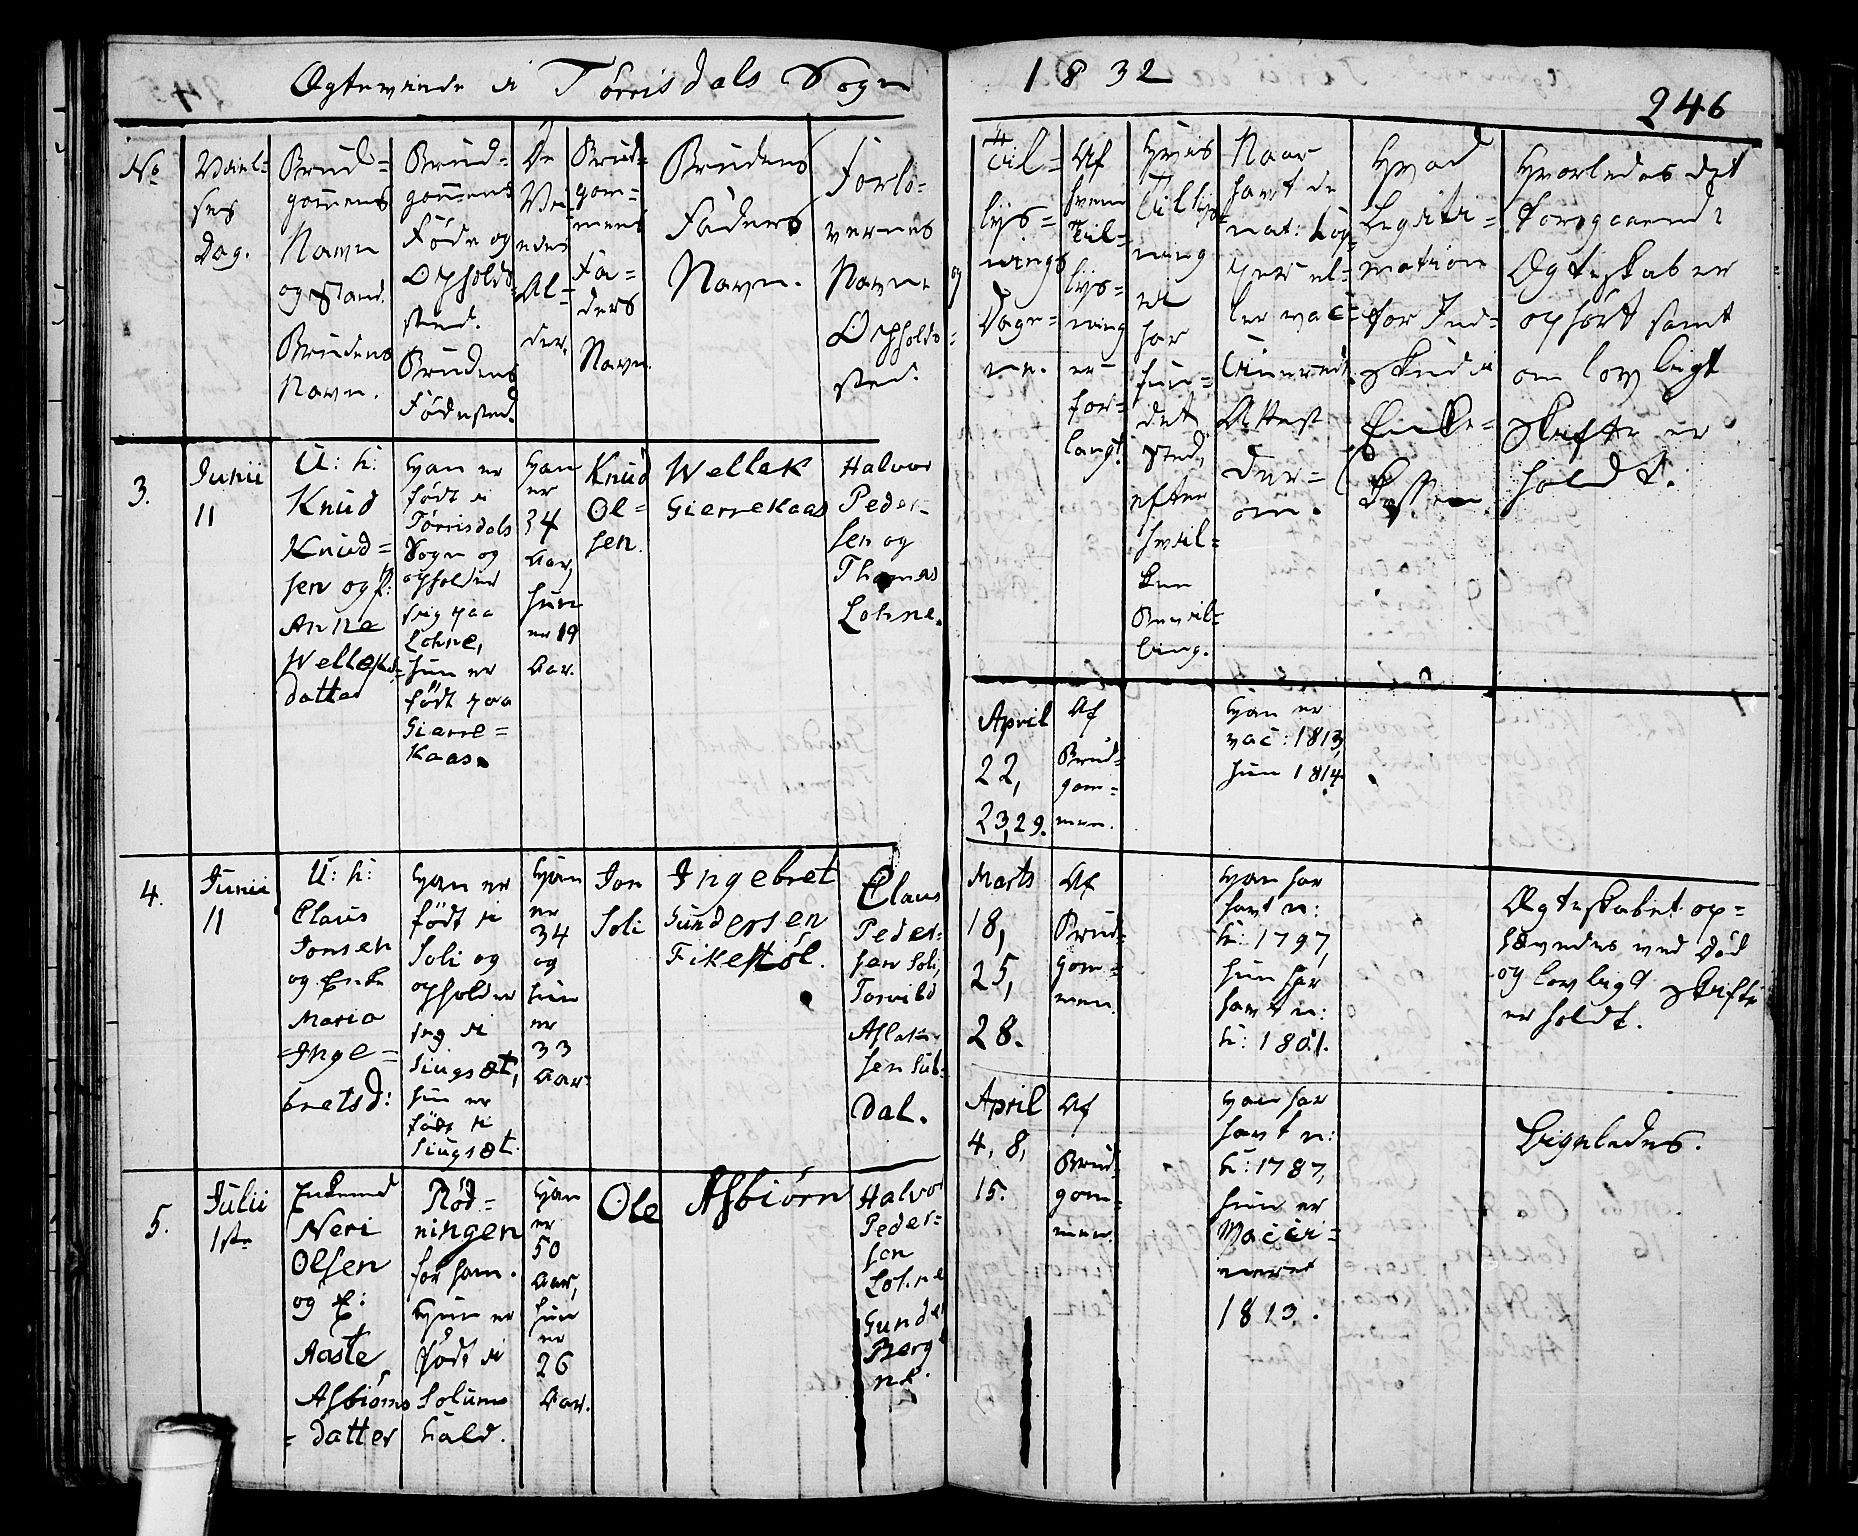 Ægteviede i Tørrisdals Sogn
1832
246
No
Vielses
Dag.
Brud-
gommens
Navn
og Stand.
Brudens
Navn.
Brud-
gommens
Føde og
Opholds-
sted.
Brudens
Fødested.
De
Vi-
edes
Al-
der.
Brud-
gom-
mens
Fa-
ders
Navn.
Brudens
Faders
Navn.
Forlo-
vernes
Navn og
Opholds-
sted.
Til-
lys-
nings
Dage-
ne.
Af
hvem
Til-
lys-
ning
er
for-
langt.
Hvis
Tillys-
ning
ei
har
fun-
det
Sted,
efter
hvil-
ken
Bevil-
ling.
Naar
havt de
nat: Kop-
per el-
ler vac-
cineret.
Attest
der-
om.
Hvad
Legiti-
mation
for Ind-
skud i
Enke-
Kassen.
Hvorledes det
foregaaende
Ægteskab er
ophört samt
om lovligt
Skifte er
holdt.
3.
Junii
11
U: k:
Knud
Knud-
sen og p:
Anne
Welleks-
datter
Han er
født i
Tørrisdals
Sogn og
opholder
sig paa
Lohne,
hun er
født paa
Gierre-
Kaas.
Han
er
34
Aar,
hun
er 19
Aar.
Knud
Ol-
sen.
Wellek
Gierrekaas
Halvor
Peder-
sen og
Thomas
Lohne.
April
22,
23, 29.
Af
Brud-
gom-
men.
Han er
vac: 1813,
hun 1814
4.
Junii
11
U: k:
Claus
Jonsen
og Enke
Maria
Inge-
bretsd:
Han er
født i
Soli og
opholder
sig i
Siugsæt,
hun er
født i
Siugsæt.
Han
er
34
og
hun
er
33
Aar.
Jon
Soli
Ingebret
Gundersen
Fikestöl.
Claus
Peder-
sen Soli,
Torvild
Aslak-
sen Sub-
dal.
Marts
18,
25,
28.
Af
Brud-
gom-
men.
Han har
havt n:
k: 1797,
hun har
havt n:
k: 1801.
Ægteskabet op-
hævedes ved Død
og lovligt Skifte
er holdt.
5.
Julii
1ste
Enkemd
Neri
Olsen
og E:
Aaste
Asbiøms
-datter
Rød-
ningen
for ham.
Hun er
født i
Solums
hald.
Han
er
50
Aar,
hun
er
26
Aar.
Ole
Asbiørn
Halvor
Peder-
sen
Lohne
Gunder
Berge
April
4, 8,
15.
Af
Brud-
gom-
men.
Han har
havt n:
k: 1787,
hun er
Vacci-
neret
1813.
Ligeledes.